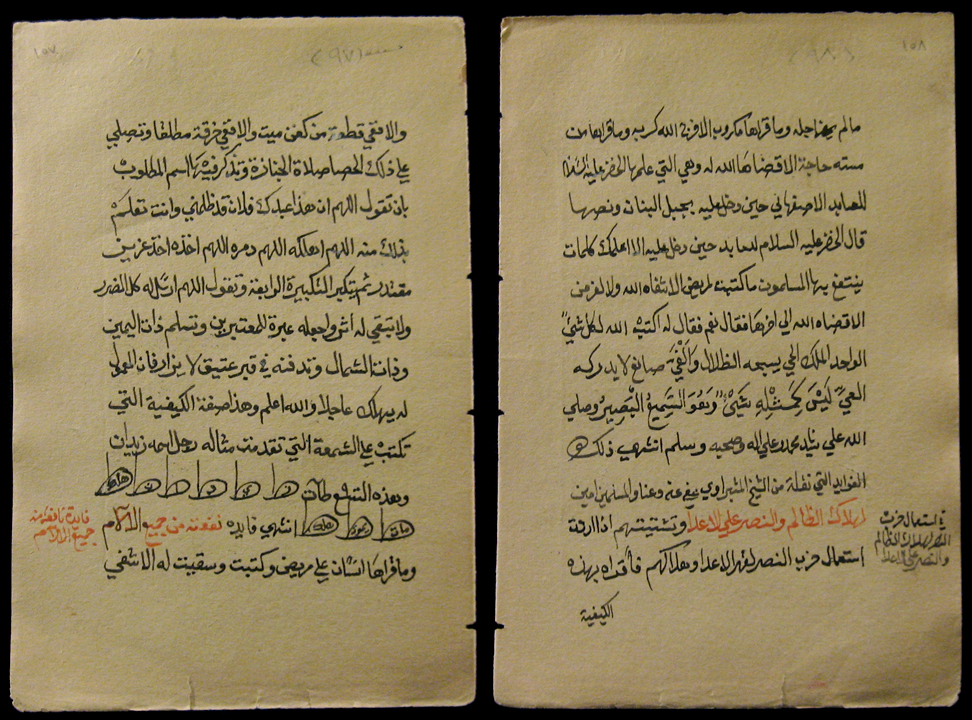 ١٥٧
(٩٧)
والا فقي قطعة من كفن ميت والا فقي خرقة مطلقا وتصلي
على ذلك الحصا صلاة الجنازة وتذكر فيها اسم المطلوب
بان تقول اللهم ان هذا عبدك فلان قد ظلمني وانت تعلم
بذلك منه اللهم اهلكه اللهم دمره اللهم اخذه اخذ عزيز
مقتدر ثم تكبر التكبيرة الرابعة وتقول اللهم ارسل له كل الضرر
ولا تبقي له اثر واجعله عبرة للمعتبرين وتسلم ذات اليمين
وذات الشمال وتدفنه في قبر عتيق لا يزار فان المعمول
له يهلك عاجلا والله اعلم وهذا صفة الكيفية التي
تكتب على الشمعة التي تقدمت مثاله رجل اسمه زيدان
وهذه التسع طآت
انتهي فايده نفعته من جميع الالام
فايدة نافعة من
جميع الالام
وما قراها انسان على مريض وكتبت وسقيت له الا شفي
١٥٨
ما لم اجله وما قراها مكروب الا فرج الله كربه وما قراها من
مسته حاجة الا قضاها الله له وهي التي علمها الخضر عليه السلام
للعابد الاصفهاني حين دخل عليه بجبل البنان ونصها
قال الخضر عليه السلام للعابد حين دخل عليه الا اعلمك كلمات
ينتفع بها المسلمون ما كتبت لمريض الا شفاه الله ولا لغرض
الا قضاه الله الي اخرها فقال نعم فقال له اكتب الله لكل شيء
الواحد الملك الحي يسبحه الظلال والفي صانع لا يدركه
العي ليس كمثله شيء وهو السميع البصير وصلي
الله علي سيد محمد وعلي اله وصحبه وسلم انتهي ذلك
الفوايد التي نقلة من الشيخ الشبراوي عفي عنه وعنا والمسلمين امين
لهلاك الظالم والنصر علي الاعدا وتشتيتهم اذا اردة
في استعمال حزب
النصر لهلاك الظالم
والنصر علي الاعدا
استعمال حزب النصر لقهر الاعدا وهلاكهم فاقراه بهذه
الكيفية